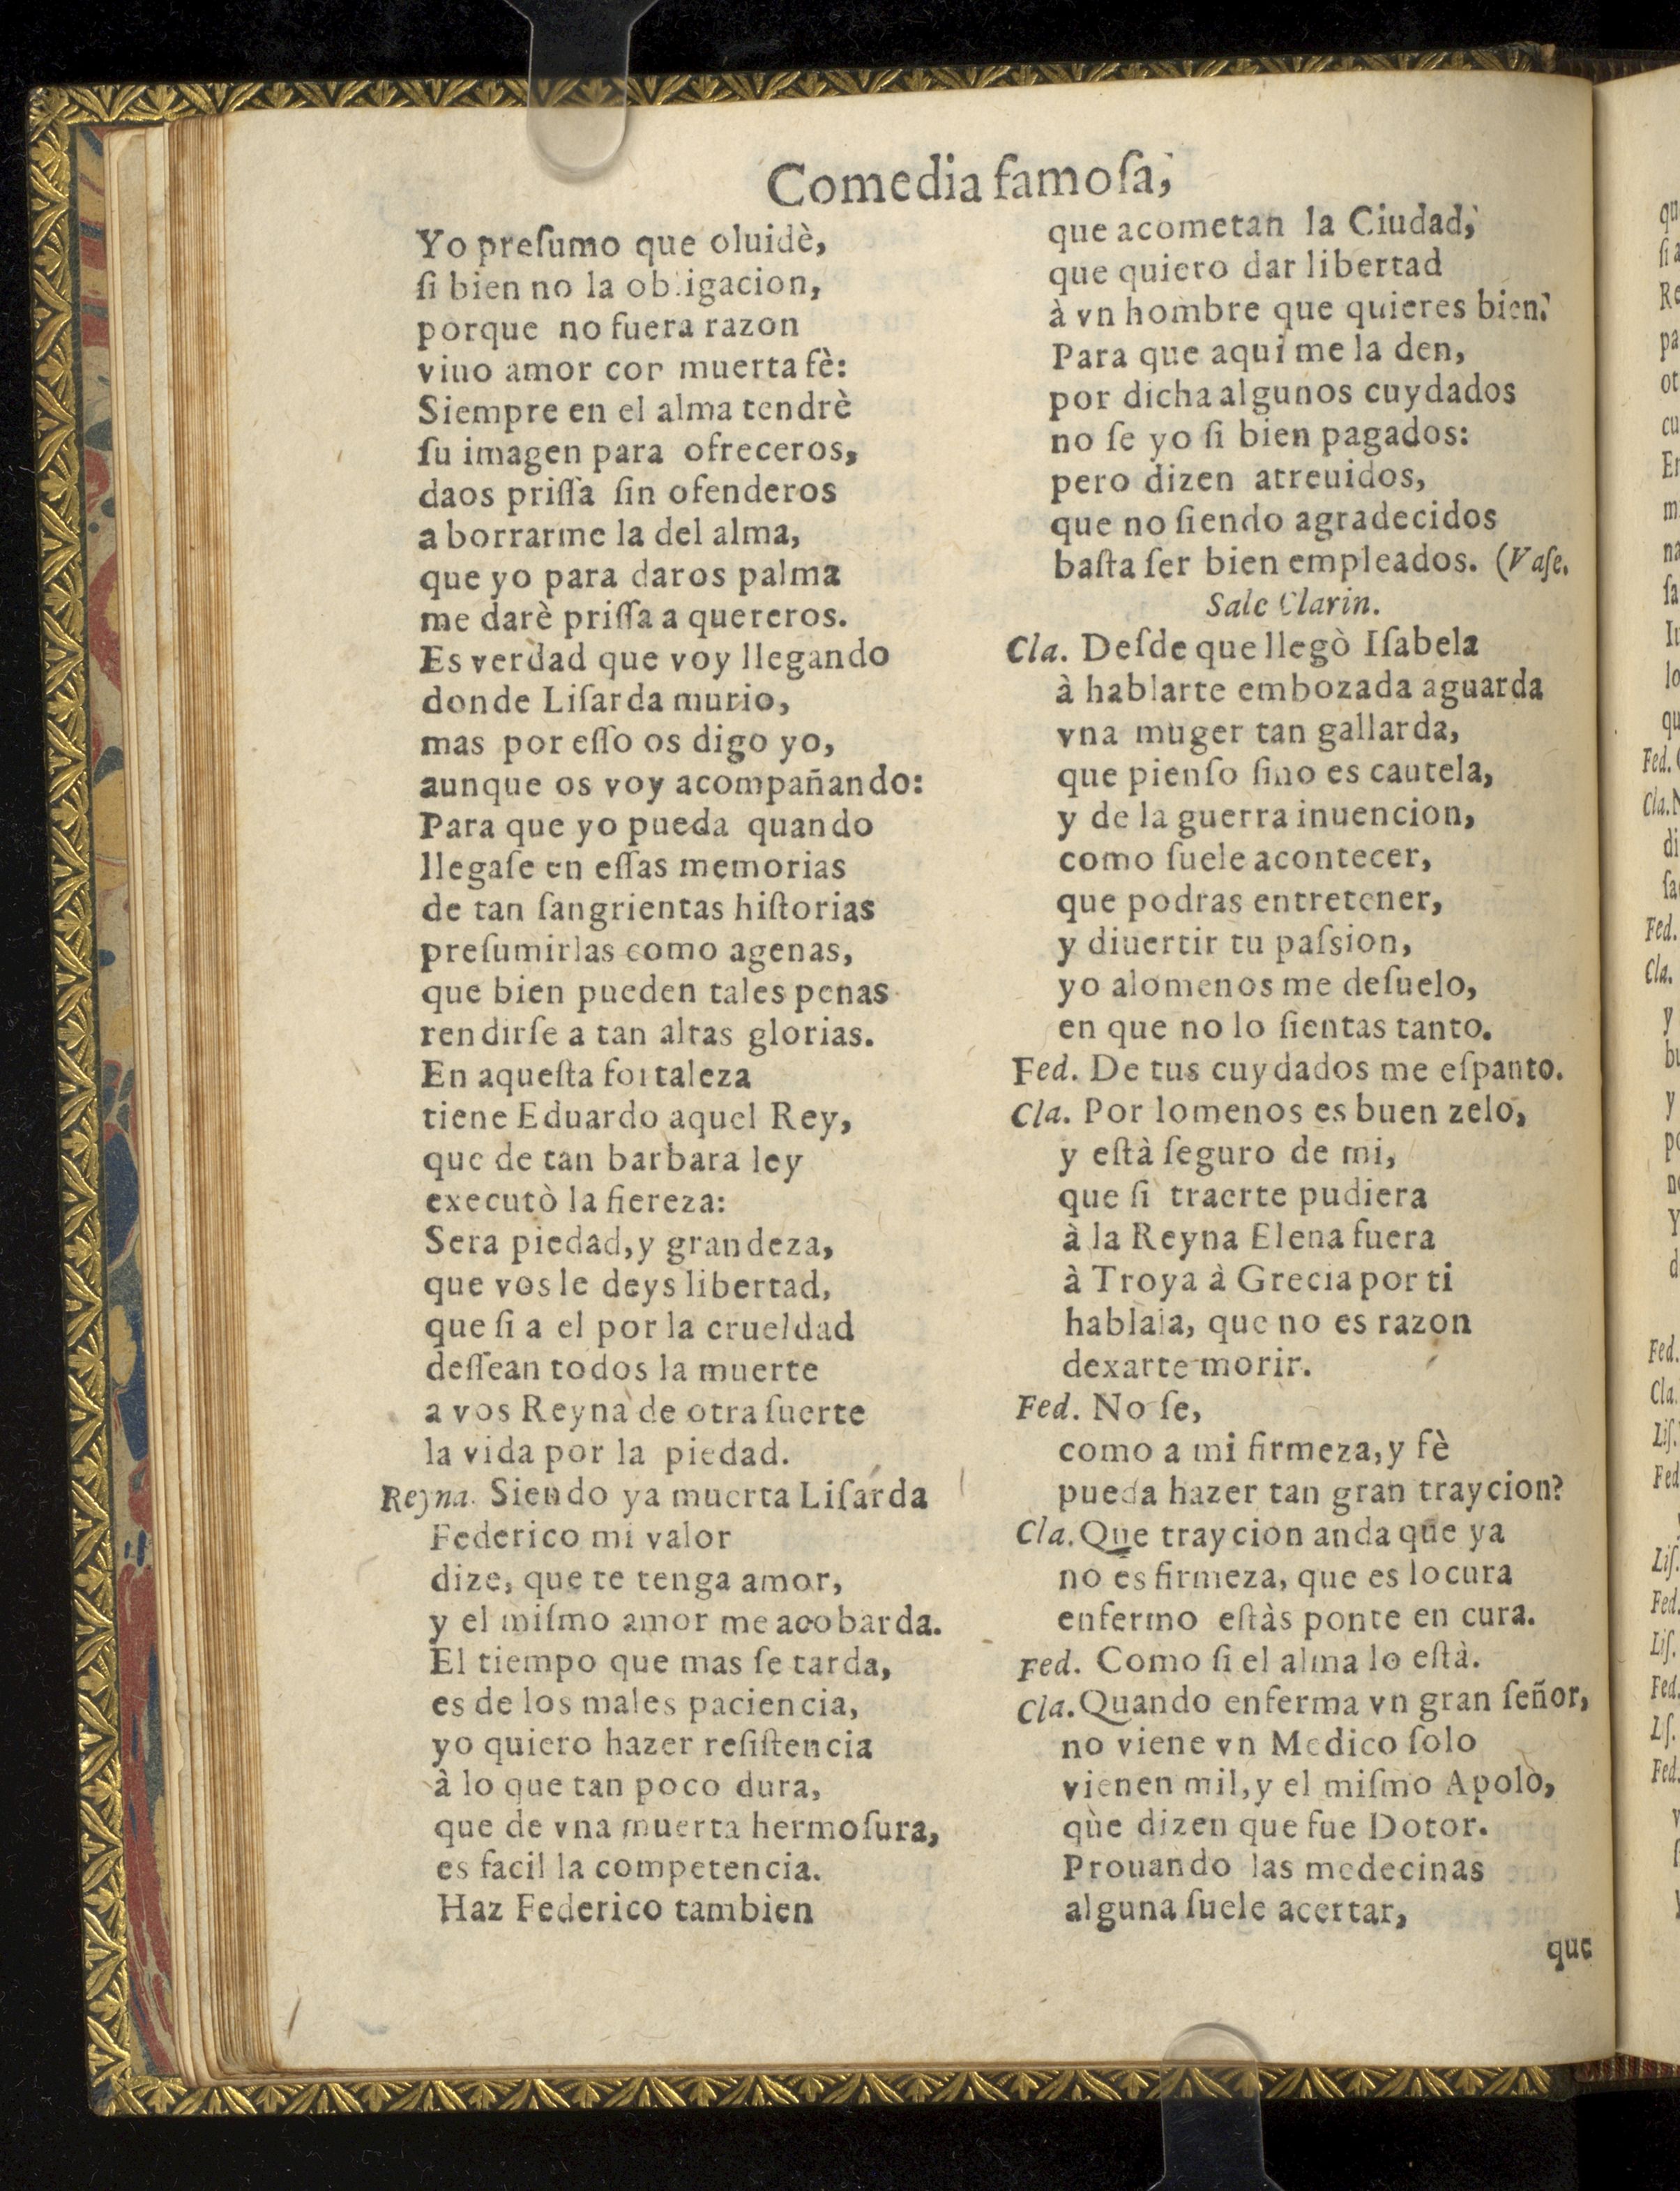 Comedia famoſa,
Yo preſumo que oluidè,
ſi bien no la obligacion,
porque no fuera razon
viuo amor con muerta fè:
Siempre en el alma tendrè
ſu imagen para ofreceros,
daos priſſa ſin ofenderos
a borrarme la del alma,
que yo para daros palma
me darè priſſa a quereros.
Es verdad que voy llegando
donde Liſarda murio,
mas por eſſo os digo yo,
aunque os voy acompañando:
Para que yo pueda quando
llegaſe en eſſas memorias
de tan ſangrientas hiſtorias
preſumirlas como agenas,
que bien pueden tales penas
rendirſe a tan altas glorias.
En aqueſta fortaleza
tiene Eduardo aquel Rey,
que de tan barbara ley
executò la fiereza:
Sera piedad, y grandeza,
que vos le deys libertad,
que ſi a el por la crueldad
deſſean todos la muerte
a vos Reyna de otra ſuerte
la vida por la piedad.
Reyna. Siendo ya muerta Liſarda
Federico mi valor
dize, que te tenga amor,
y el miſmo amor me acobarda.
El tiempo que mas ſe tarda,
es de los males paciencia,
yo quiero hazer reſiſtencia
à lo que tan poco dura,
que de vna muerta hermoſura,
es facil la competencia.
Haz Federico tambien
que acometan la Ciudad,
que quiero dar libertad
à vn hombre que quieres bien.
Para que aqui me la den,
por dicha algunos cuydados
no ſe yo ſi bien pagados:
pero dizen atreuidos,
que no ſiendo agradecidos
baſta ſer bien empleados. (Vaſe.
Sale Clarin.
Cla. Deſde que llegò Iſabela
à hablarte embozada aguarda
vna muger tan gallarda,
que pienſo ſino es cautela,
y de la guerra inuencion,
como ſuele acontecer,
que podras entretener,
y diuertir tu paſsion,
yo alomenos me deſuelo,
en que no lo ſientas tanto.
Fed. De tus cuydados me eſpanto.
Cla. Por lomenos es buen zelo,
y eſtà ſeguro de mi,
que ſi traerte pudiera
à la Reyna Elena fuera
à Troya à Grecia por ti
hablaia, que no es razon
dexarte morir.
Fed. No ſe,
como a mi firmeza, y fè
pueda hazer tan gran traycion?
Cla. Que traycion anda que ya
no es firmeza, que es locura
enfermo eſtàs ponte en cura.
Fed. Como ſi el alma lo eſtà.
Cla. Quando enferma vn gran ſeñor,
no viene vn Medico ſolo
vienen mil, y el miſmo Apolo,
que dizen que fue Dotor.
Prouando las medecinas
alguna ſuele acertar,
que